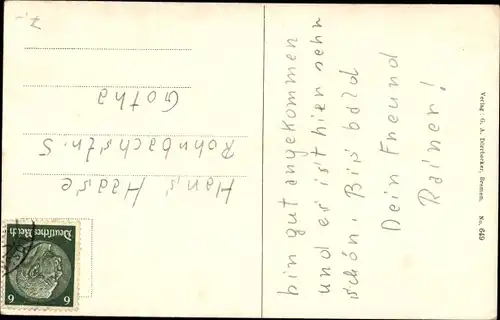 bin gut angekommen
und es ist hier sehr
schön. Bis bald
Dein Freund
Rainer!
Hans Haase
Rohrbachstr. 5
Gotha
Verlag: G. A. Dörrbecker, Bremen. No. 649
Deutsches Reich
6 6
7,-